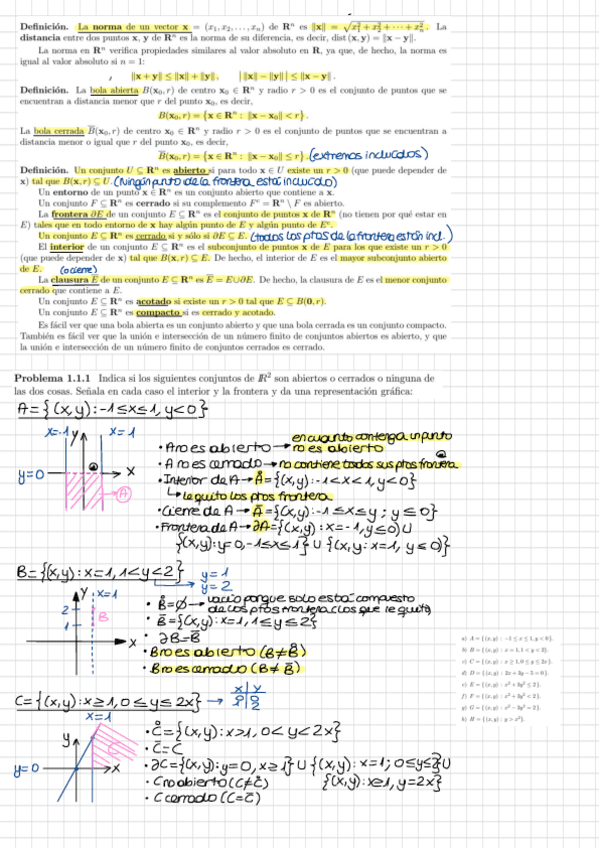 Definición. La norma de un vector x = (x₁, x₂, . . . , xₙ) de Rⁿ es ‖x‖ = √(x₁² + x₂² + · · · + xₙ²). La
distancia entre dos puntos x, y de Rⁿ es la norma de su diferencia, es decir, dist (x, y) = ‖x − y‖.
La norma en Rⁿ verifica propiedades similares al valor absoluto en R, ya que, de hecho, la norma es
igual al valor absoluto si n = 1:
‖x + y‖ ≤ ‖x‖ + ‖y‖ , |‖x‖ − ‖y‖| ≤ ‖x − y‖ .
Definición. La bola abierta B(x₀, r) de centro x₀ ∈ Rⁿ y radio r > 0 es el conjunto de puntos que se
encuentran a distancia menor que r del punto x₀, es decir,
B(x₀, r) = {x ∈ Rⁿ : ‖x − x₀‖ < r} .
La bola cerrada B̅(x₀, r) de centro x₀ ∈ Rⁿ y radio r > 0 es el conjunto de puntos que se encuentran a
distancia menor o igual que r del punto x₀, es decir,
B̅(x₀, r) = {x ∈ Rⁿ : ‖x − x₀‖ ≤ r} . (extremos incluídos)
Definición. Un conjunto U ⊆ Rⁿ es abierto si para todo x ∈ U existe un r > 0 (que puede depender de
x) tal que B(x, r) ⊆ U. (Ningún punto de la frontera está incluido)
Un entorno de un punto x ∈ Rⁿ es un conjunto abierto que contiene a x.
Un conjunto F ⊆ Rⁿ es cerrado si su complemento Fᶜ = Rⁿ \ F es abierto.
La frontera ∂E de un conjunto E ⊆ Rⁿ es el conjunto de puntos x de Rⁿ (no tienen por qué estar en
E) tales que en todo entorno de x hay algún punto de E y algún punto de Eᶜ.
Un conjunto E ⊆ Rⁿ es cerrado si y sólo si ∂E ⊆ E. (todos los ptos de la frontera están incl.)
El interior de un conjunto E ⊆ Rⁿ es el subconjunto de puntos x de E para los que existe un r > 0
(que puede depender de x) tal que B(x, r) ⊆ E. De hecho, el interior de E es el mayor subconjunto abierto
de E. (o cierre)
La clausura E̅ de un conjunto E ⊆ Rⁿ es E̅ = E∪∂E. De hecho, la clausura de E es el menor conjunto
cerrado que contiene a E.
Un conjunto E ⊆ Rⁿ es acotado si existe un r > 0 tal que E ⊆ B(0, r).
Un conjunto E ⊆ Rⁿ es compacto si es cerrado y acotado.
Es fácil ver que una bola abierta es un conjunto abierto y que una bola cerrada es un conjunto compacto.
También es fácil ver que la unión e intersección de un número finito de conjuntos abiertos es abierto, y que
la unión e intersección de un número finito de conjuntos cerrados es cerrado.
Problema 1.1.1 Indica si los siguientes conjuntos de R² son abiertos o cerrados o ninguna de
las dos cosas. Señala en cada caso el interior y la frontera y da una representación gráfica:
A = {(x,y) : -1 ≤ x ≤ 1, y < 0}
x=-1 y x=1
y=0 x
A
en cuanto contenga un punto
• A no es abierto → no es abierto
• A no es cerrado → no contiene todos sus ptos frontera
• Interior de A → Å = {(x,y) : -1 < x < 1, y < 0}
↳ le quito los ptos frontera
• Cierre de A → A̅ = {(x,y) : -1 ≤ x ≤ y ; y ≤ 0}
• Frontera de A → ∂A = {(x,y) : x = -1, y ≤ 0} ∪
{(x,y) : y = 0, -1 ≤ x ≤ 1} ∪ {(x,y : x = 1, y ≤ 0)}
B = {(x,y) : x = 1, 1 < y < 2} → y = 1
y = 2
y x=1
2
1
B
x
• B̊ = ∅ → vacío porque solo está compuesto
de los ptos frontera (los que le quito)
• B̅ = {(x,y) : x = 1, 1 ≤ y ≤ 2}
• ∂B = B̅
• B no es abierto (B ≠ B̊)
• B no es cerrado (B ≠ B̅)
C = {(x,y) : x ≥ 1, 0 ≤ y ≤ 2x} →
x y
0 0
1 2
x=1
y
C
y=0 x
• C̊ = {(x,y) : x > 1, 0 < y < 2x}
• C̅ = C
• ∂C = {(x,y) : y = 0, x ≥ 1} ∪ {(x,y) : x = 1 ; 0 ≤ y ≤ 2} ∪
{(x,y) : x ≥ 1, y = 2x}
• C no abierto (C ≠ C̊)
• C cerrado (C = C̅)
a) A = {(x, y) : −1 ≤ x ≤ 1, y < 0}.
b) B = {(x, y) : x = 1, 1 < y < 2}.
c) C = {(x, y) : x ≥ 1, 0 ≤ y ≤ 2x}.
d) D = {(x, y) : 2x + 3y − 5 = 0}.
e) E = {(x, y) : x² + 3y² ≤ 2}.
f) F = {(x, y) : x² + 3y² < 2}.
g) G = {(x, y) : x² − 3y² = 2}.
h) H = {(x, y) : y > x²}.